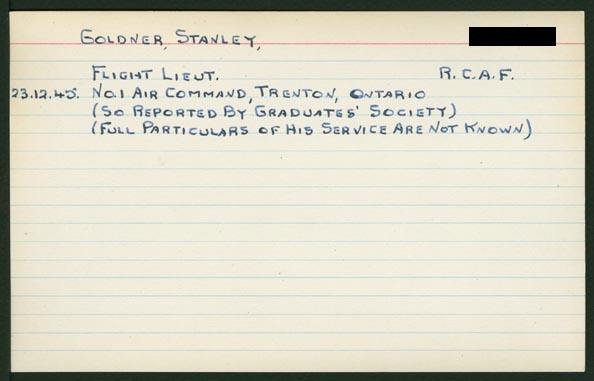 GOLDNER, STANLEY,
FLIGHT LIEUT. R.C.A.F.
23.12.45. NO.1 AIR COMMAND, TRENTON, ONTARIO
(SO REPORTED BY GRADUATES' SOCIETY)
(FULL PARTICULARS OF HIS SERVICE ARE NOT KNOWN)